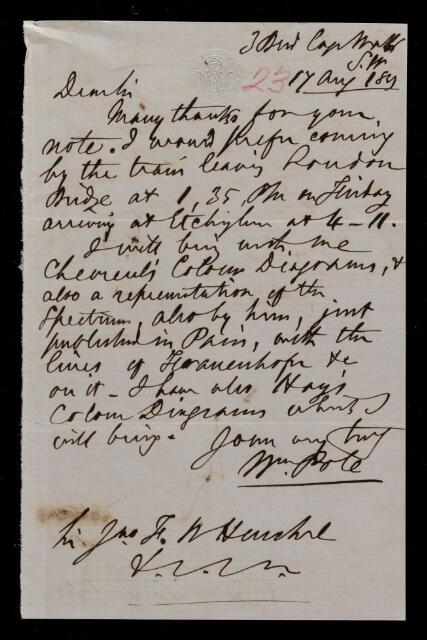 3 Bird Cage Walk
S.W.
23 17 Aug 189
Dear Sir
Many thanks for your
note. I would prefer coming
by the train leaving London
Bridge at 1,35 PM on Friday
arriving at Etchingham at 4-11.
I will bring with me
Chevreul's Colour Diagrams, &
also a representation of the
Spectrum, also by him, just
published in Paris, with the
lines of Frauenhofer &c
on it - I have also Hay's
Colour Diagrams which I
will bring.
Yours very truly
Wm Pole
Sir Jno F. W Herschel